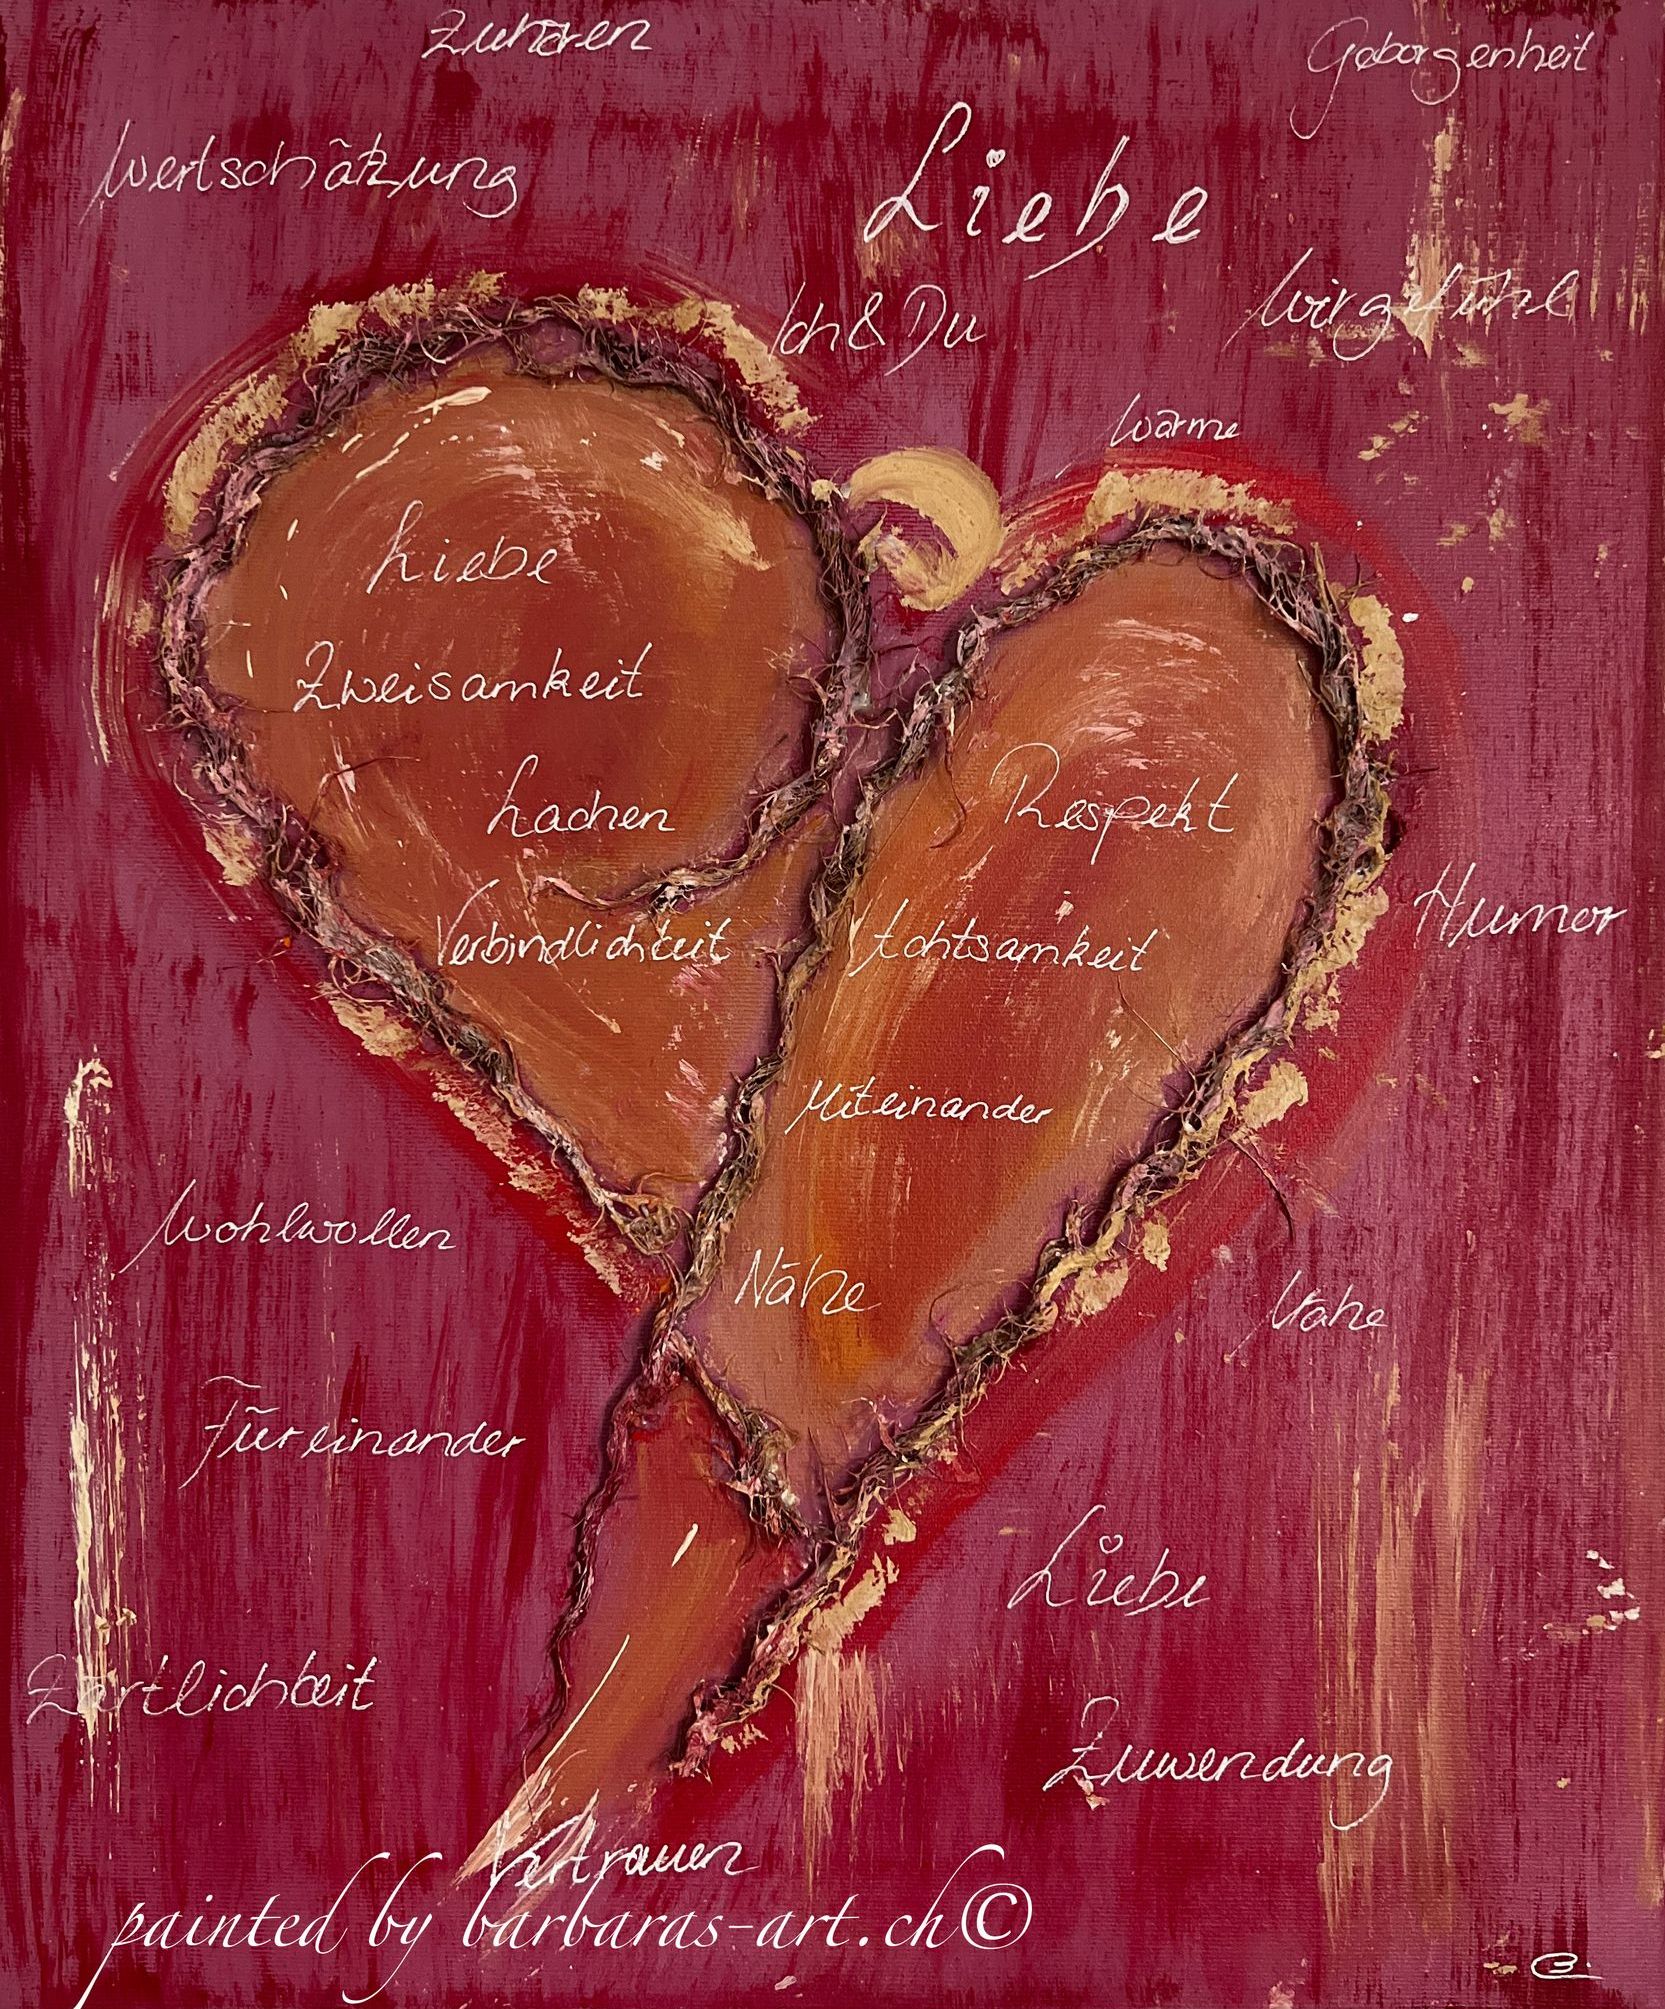 Zuhören
Geborgenheit
Wertschätzung
Liebe
Ich & Du
Wirgefühl
Wärme
Liebe
Zweisamkeit
Lachen
Respekt
Humor
Verbindlichkeit
Achtsamkeit
Miteinander
Wohlwollen
Nähe
Nähe
Füreinander
Liebe
Zärtlichkeit
Zuwendung
Vertrauen
painted by barbaras-art.ch©
B.